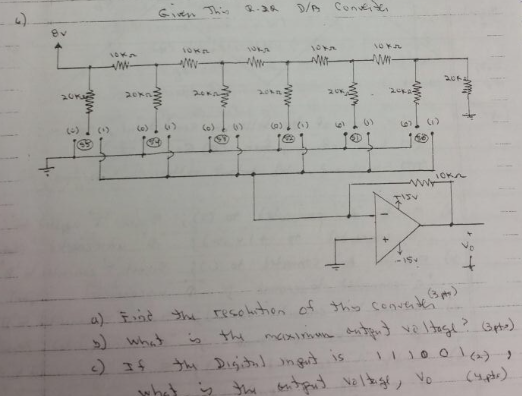 6) Given This R-2R D/A Converter
8v
10KΩ 10KΩ 10KΩ 10KΩ 10KΩ
20KΩ 20KΩ 20KΩ 20KΩ 20KΩ 20KΩ 20KΩ
(0) S5 (1) (0) S4 (1) (0) S3 (1) (0) S2 (1) (0) S1 (1) (0) S0 (1)
10KΩ
+15v
-
+
+
Vo
-15v
a) Find the resolution of this converter (3pts)
b) What is the maximum output voltage? (3pts)
c) If the Digital input is 111001(2) ,
what is the output voltage, Vo (4pts)